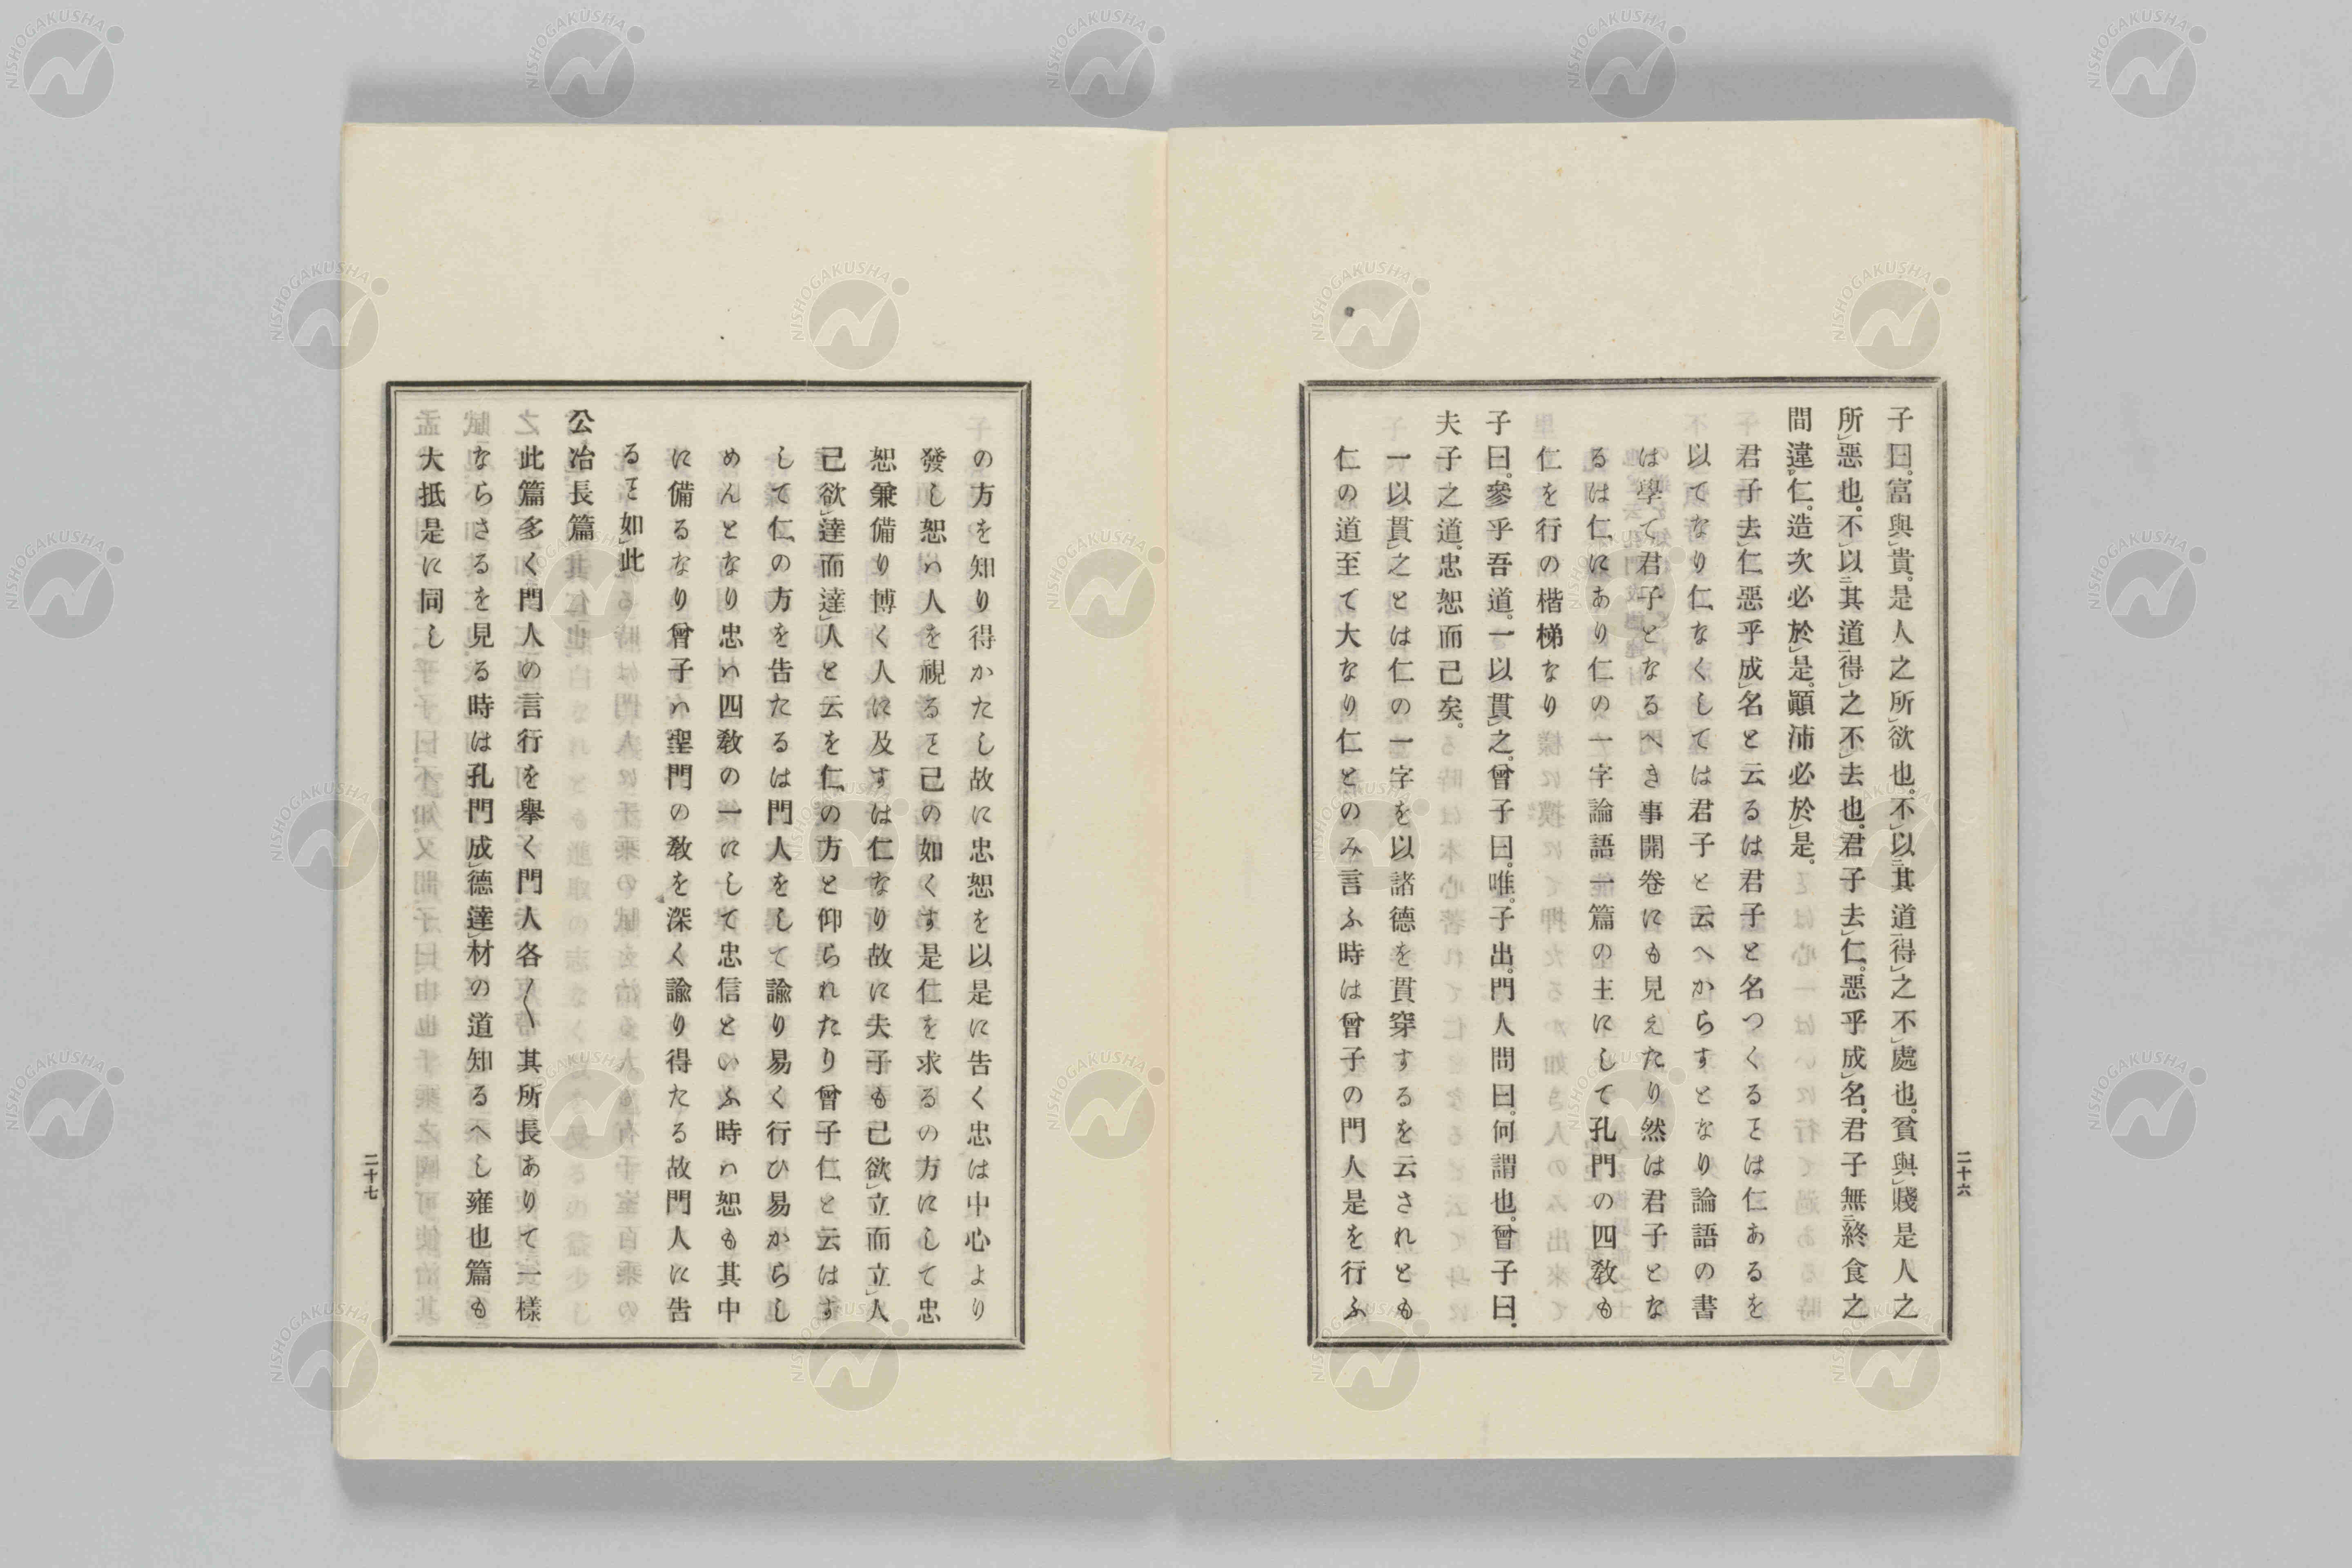 子曰。富與レ貴。是人之所レ欲也。不レ以二其道一得レ之不レ處也。貧與レ賤是人之
所レ惡也。不レ以二其道一得レ之不レ去也。君子去レ仁。惡乎成レ名。君子無二終食之
間違レ仁。造次必於レ是。顚沛必於レ是。
君子去レ仁惡乎成レ名と云るは君子と名つくるヿは仁あるを
以てなり仁なくしては君子と云へからすとなり論語の書
は學て君子となるへき事開卷にも見えたり然は君子とな
るは仁にあり仁の一字論語一篇の主にして孔門の四敎も
仁を行の楷梯なり
子曰。參乎吾道。一以貫レ之。曾子曰。唯。子出。門人問曰。何謂也。曾子曰。
夫子之道。忠恕而已矣。
一以貫レ之とは仁の一字を以諸德を貫穿するを云されとも
仁の道至て大なり仁とのみ言ふ時は曾子の門人是を行ふ
二十六
の方を知り得かたし故に忠恕を以是に告く忠は中心より
發し恕ハ人を視るヿ己の如くす是仁を求るの方にして忠
恕兼備り博く人に及すは仁なり故に夫子も己欲レ立而立レ人
己欲レ達而達レ人と云を仁の方と仰られたり曾子仁と云はす
して仁の方を告たるは門人をして諭り易く行ひ易からし
めんとなり忠ハ四敎の一にして忠信といふ時ハ恕も其中
に備るなり曾子ハ聖門の敎を深く諭り得たる故門人に告
るヿ如レ此
公冶長篇
此篇多く門人の言行を擧く門人各〱其所長ありて一樣
ならさるを見る時は孔門成レ德達レ材の道知るへし雍也篇も
大抵是に同し
二十七
NISHOGAKUSHA